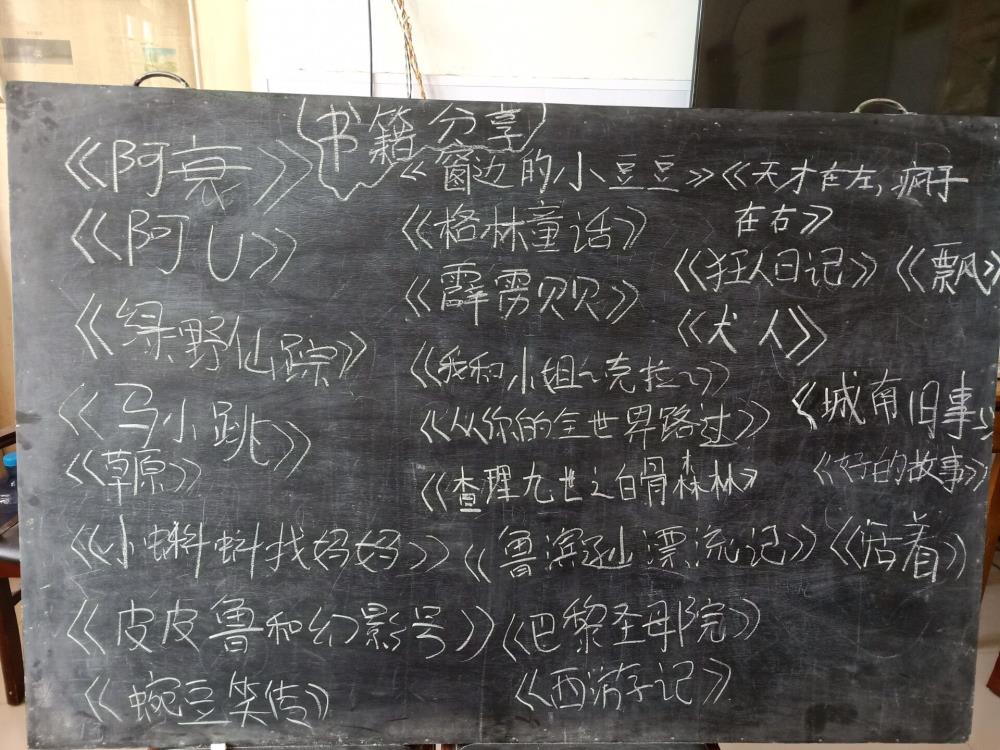 书籍分享
《阿衰》
《阿U》
《绿野仙踪》
《马小跳》
《草原》
《小蝌蚪找妈妈》
《皮皮鲁和幻影号》
《蜿豆笑传》
《窗边的小豆豆》
《格林童话》
《霹雳贝贝》
《我和小姐々克拉々》
《从你的全世界路过》
《查理九世之白骨森林》
《鲁滨逊漂流记》
《巴黎圣母院》
《西游记》
《天才在左,疯子
在右》
《狂人日记》《飘》
《犬人》
《城南旧事》
《好的故事》
《活着》